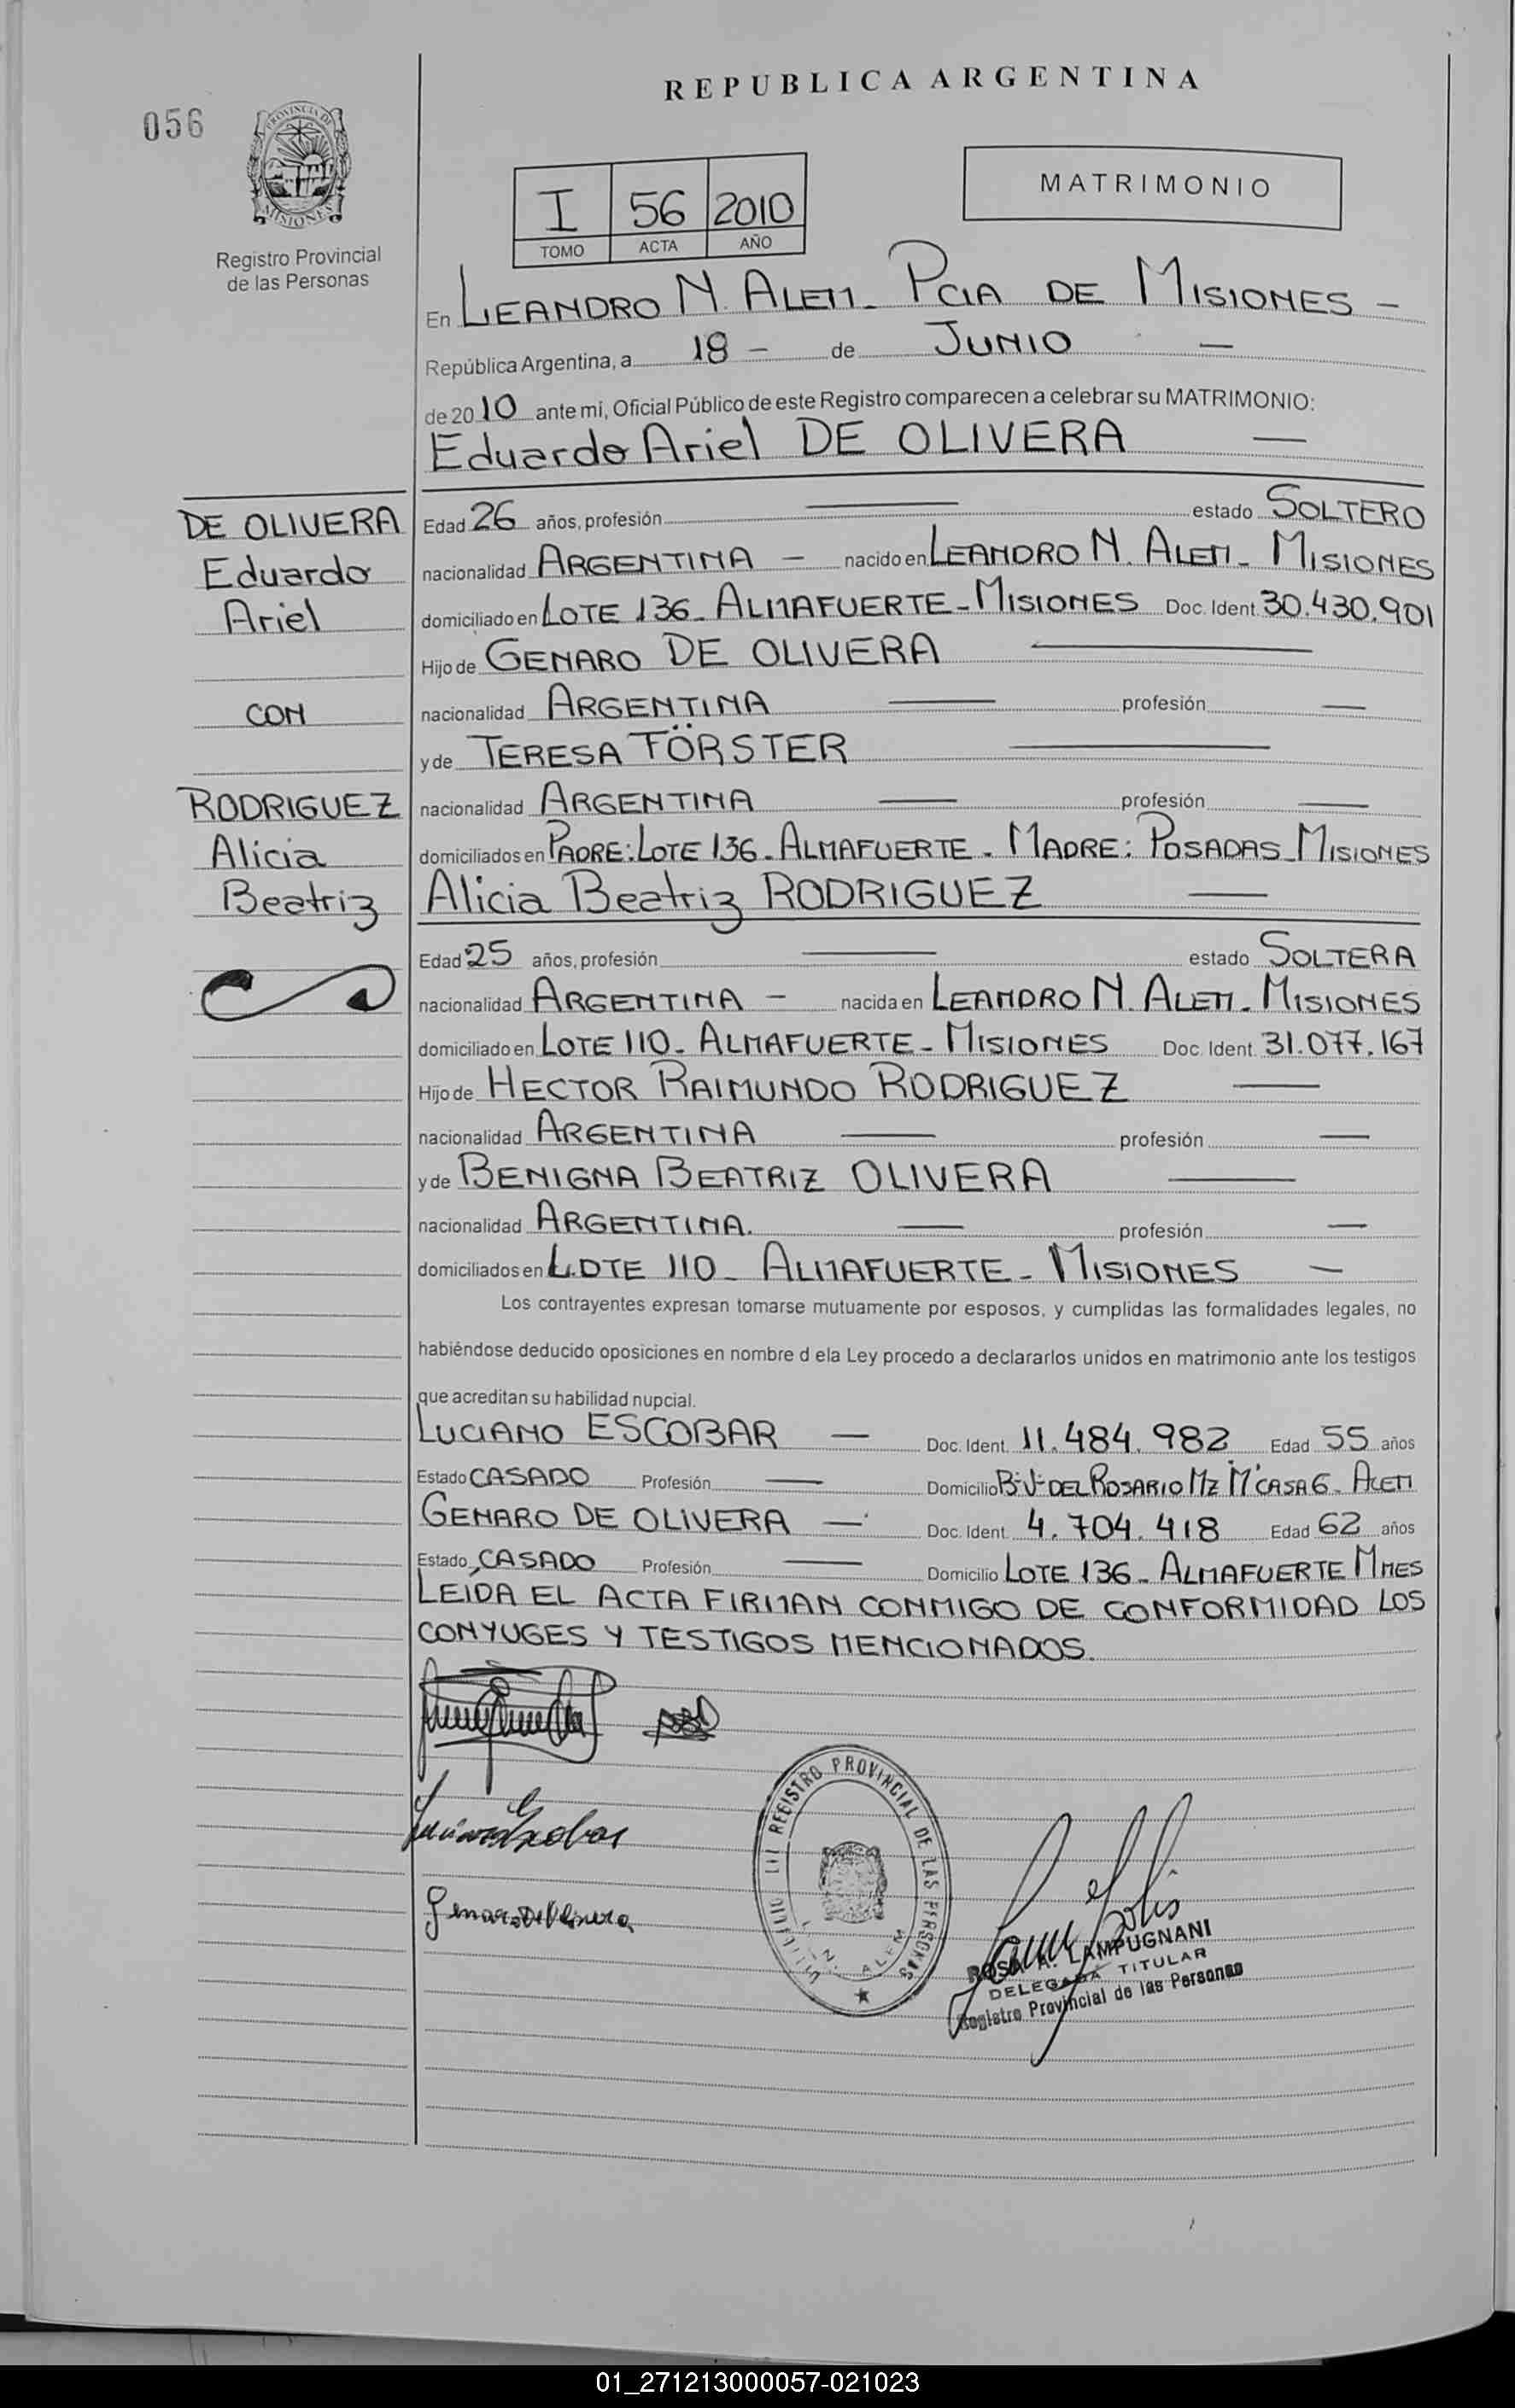 REPUBLICA ARGENTINA
056
PROVINCIA DE MISIONES
Registro Provincial
de las Personas
I 56 2010
TOMO ACTA AÑO
MATRIMONIO
En LEANDRO N. ALEM - PCIA DE MISIONES -
República Argentina, a 18 - de JUNIO -
de 2010 ante mí, Oficial Público de este Registro comparecen a celebrar su MATRIMONIO:
Eduardo Ariel DE OLIVERA —
DE OLIVERA
Eduardo
Ariel
CON
RODRIGUEZ
Alicia
Beatriz
Edad 26 años, profesión — estado SOLTERO
nacionalidad ARGENTINA - nacido en LEANDRO N. ALEM - MISIONES
domiciliado en LOTE 136 - ALMAFUERTE - MISIONES Doc. Ident. 30.430.901
Hijo de GENARO DE OLIVERA —
nacionalidad ARGENTINA — profesión —
y de TERESA FÖRSTER —
nacionalidad ARGENTINA — profesión —
domiciliados en PADRE: LOTE 136 - ALMAFUERTE - MADRE: POSADAS - MISIONES
Alicia Beatriz RODRIGUEZ —
Edad 25 años, profesión — estado SOLTERA
nacionalidad ARGENTINA - nacida en LEANDRO N. ALEM - MISIONES
domiciliado en LOTE 110 - ALMAFUERTE - MISIONES Doc. Ident. 31.077.167
Hijo de HECTOR RAIMUNDO RODRIGUEZ —
nacionalidad ARGENTINA — profesión —
y de BENIGNA BEATRIZ OLIVERA —
nacionalidad ARGENTINA. — profesión —
domiciliados en LOTE 110 - ALMAFUERTE - MISIONES —
Los contrayentes expresan tomarse mutuamente por esposos, y cumplidas las formalidades legales, no
habiéndose deducido oposiciones en nombre d ela Ley procedo a declararlos unidos en matrimonio ante los testigos
que acreditan su habilidad nupcial.
LUCIANO ESCOBAR — Doc. Ident. 11.484.982 Edad 55 años
Estado CASADO Profesión — Domicilio Bº Vº DEL ROSARIO MZ "M" CASA 6 - ALEM
GENARO DE OLIVERA — Doc. Ident. 4.704.418 Edad 62 años
Estado CASADO Profesión — Domicilio LOTE 136 - ALMAFUERTE MNES
LEIDA EL ACTA FIRMAN CONMIGO DE CONFORMIDAD LOS
CONYUGES Y TESTIGOS MENCIONADOS.
Luciano Escobar
Genaro De Olivera
REGISTRO PROVINCIAL DE LAS PERSONAS
L. N. ALEM
ROSA A. LAMPUGNANI
DELEGADA TITULAR
Registro Provincial de las Personas
01_271213000057-021023